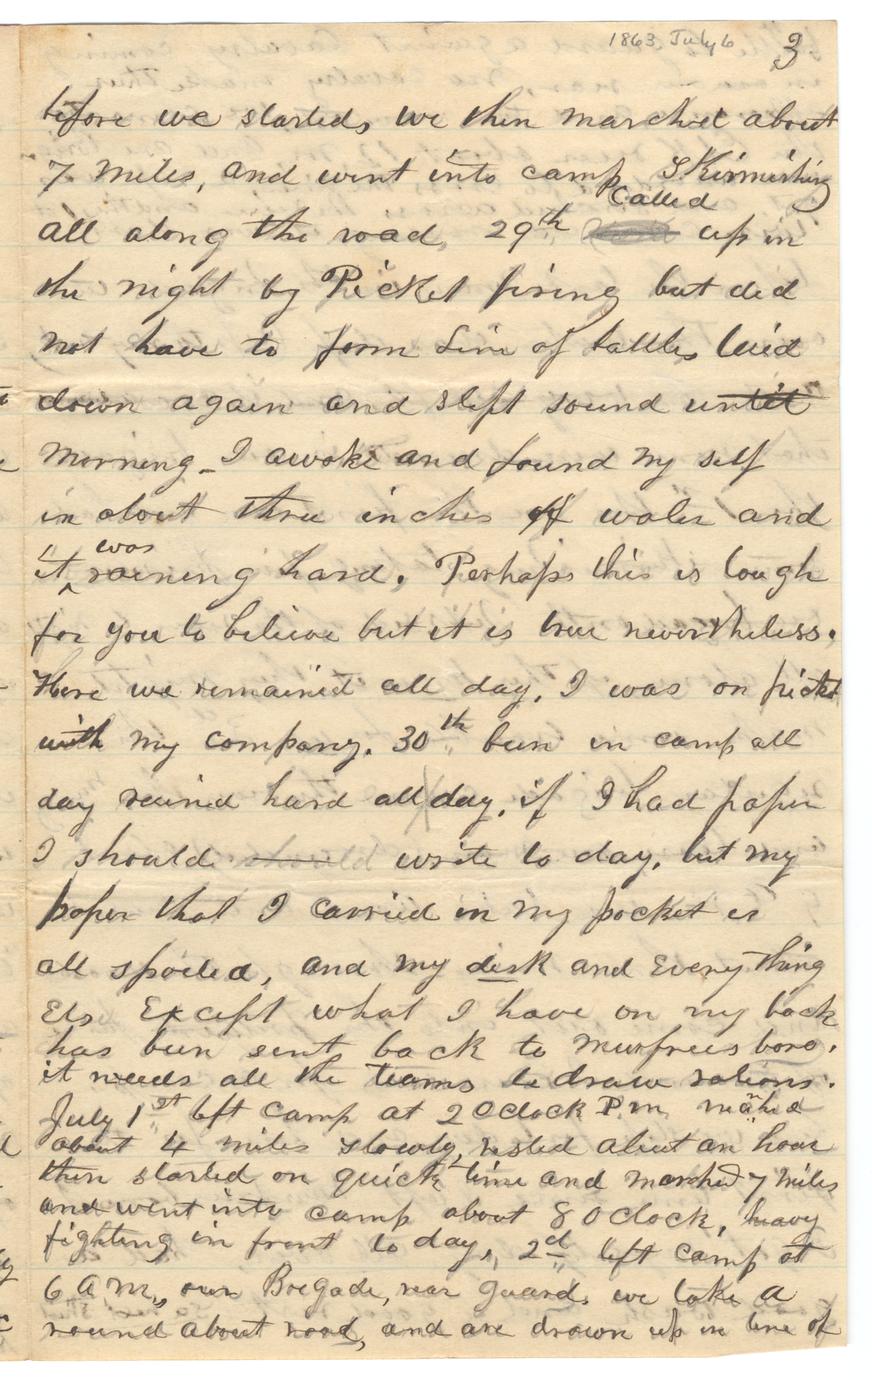 1863, July 6
3
before we started, we then marched about
7 miles, and went into camp, Skirmishing
all along the road, 29th Called up in
the night by Picket firing but did
not have to form Line of battle, laid
down again and slept sound until
morning_ I awoke and found my self
in about three inches of water and
it was raining hard. Perhaps this is tough
for you to believe but it is true nevertheless.
Here we remained all day, I was on picket
with my company. 30th been in camp all
day rained hard all day, if I had paper
I should write to day, but my
paper that I carried in my pocket is
all spoiled, and my desk and Everything
Els Except what I have on my back
has been sent back to Murfreesboro,
it needs all the teams to draw rations.
July 1st left camp at 2 Oclock P.m.
about 4 miles slowly, rested about an hour
then started on quick time and marched 7 miles
and went into camp about 8 Oclock, heavy
fighting in front to day, 2d left camp at
6 A M, our Bregade, rear guard, we take a
round about road, and are drawn up in line of